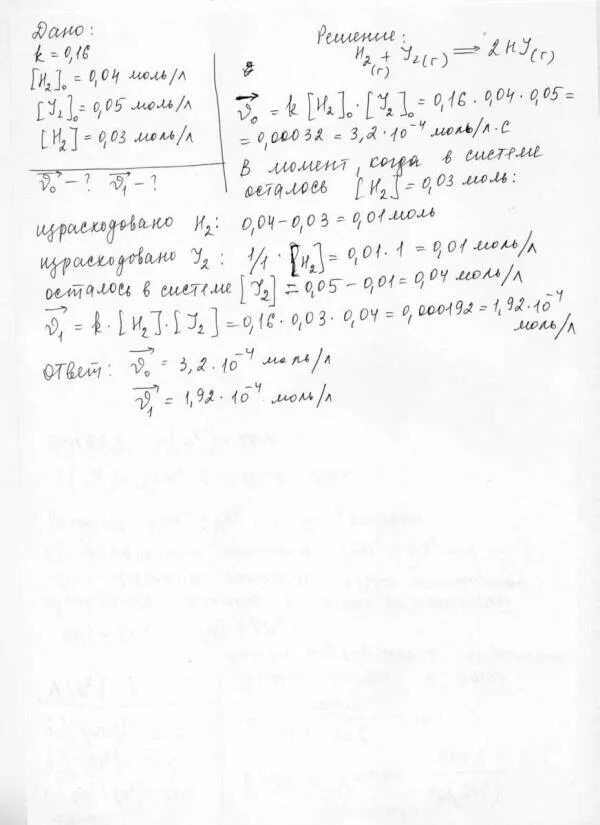 Дано:
k = 0,16
[H₂]₀ = 0,04 моль/л
[J₂]₀ = 0,05 моль/л
[H₂] = 0,03 моль/л
v₀ - ? v₁ - ?
Решение:
H₂(г) + J₂(г) ⇒ 2HJ(г)
v₀ = k [H₂]₀ · [J₂]₀ = 0,16 · 0,04 · 0,05 =
= 0,00032 = 3,2 · 10⁻⁴ моль/л · с
В момент, когда в системе
осталось [H₂] = 0,03 моль:
израсходовано H₂: 0,04 - 0,03 = 0,01 моль
израсходовано J₂: 1/1 · [H₂] = 0,01 · 1 = 0,01 моль/л
осталось в системе [J₂] = 0,05 - 0,01 = 0,04 моль/л
v₁ = k · [H₂] · [J₂] = 0,16 · 0,03 · 0,04 = 0,000192 = 1,92 · 10⁻⁴
моль/л
ответ: v₀ = 3,2 · 10⁻⁴ моль/л
v₁ = 1,92 · 10⁻⁴ моль/л